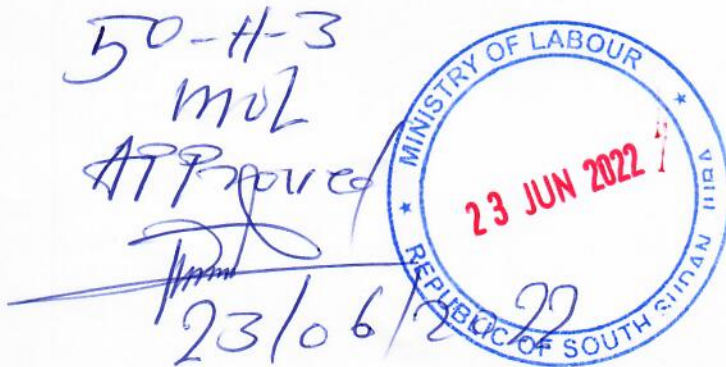 50-H-3
MOL
APProved
23/06/2022
MINISTRY OF LABOUR
23 JUN 2022
REPUBLIC OF SOUTH SUDAN